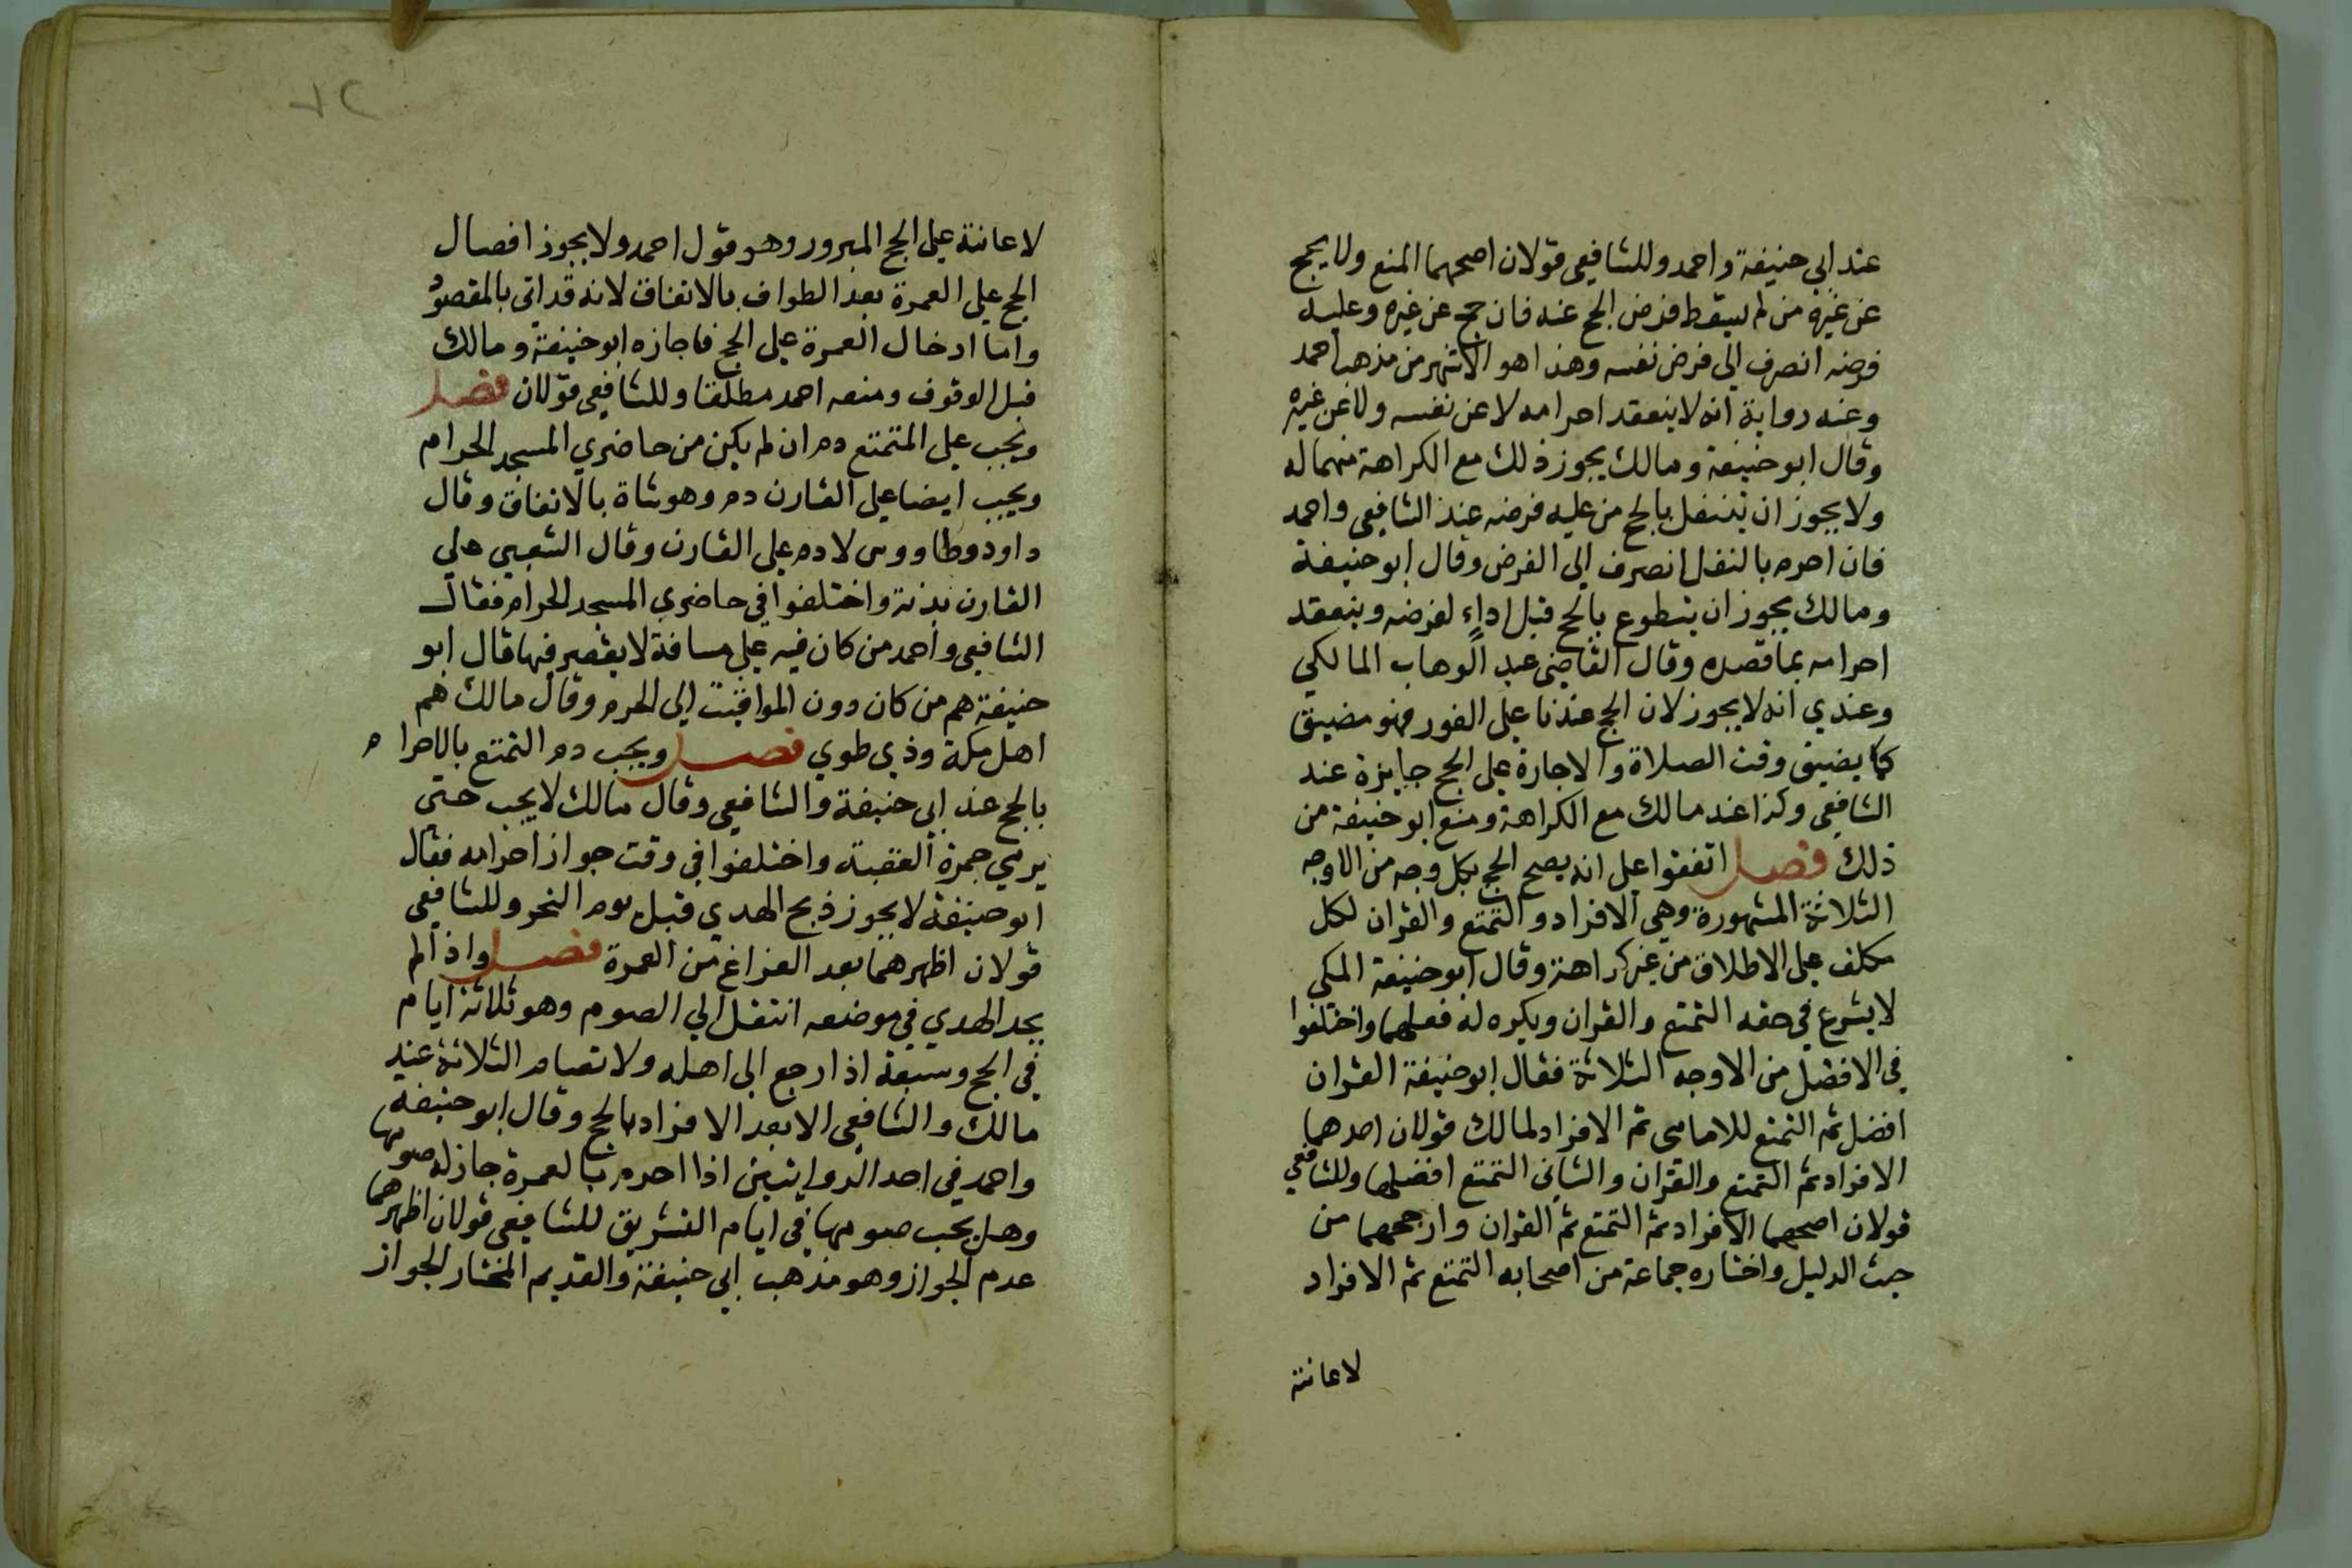 عند ابي حنيفة واحمد وللشافعي قولان اصحهما المنع ولا يحج
عن غيره من لم يسقط فرض الحج عنه فان حج عن غيره وعليه
فرضه انصرف الى فرض نفسه وهذا هو الاشهر من مذهب احمد
وعنه رواية انه لا ينعقد احرامه لا عن نفسه ولا عن غيره
وقال ابو حنيفة ومالك يجوز ذلك مع الكراهة منهما له
ولا يجوز ان يتنفل بالحج من عليه فرضه عند الشافعي واحمد
فان احرم بالنفل انصرف الى الفرض وقال ابو حنيفة
ومالك يجوز ان يتطوع بالحج قبل اداء لفرضه وينعقد
احرامه بما قصده وقال القاضي عبد الوهاب المالكي
وعندي انه لا يجوز لان الحج عندنا على الفور فهو مضيق
كما يضيق وقت الصلاة والاجارة على الحج جايزة عند
الشافعي وكذا عند مالك مع الكراهة ومنع ابو حنيفة من
ذلك فصل اتفقوا على انه يصح الحج بكل وجه من الاوجه
الثلاثة المشهورة وهي الافراد والتمتع والقران لكل
مكلف على الاطلاق من غير كراهة وقال ابو حنيفة المكي
لا يشرع في حقه التمتع والقران ويكره له فعلهما واختلفوا
في الافضل من الاوجه الثلاثة فقال ابو حنيفة القران
افضل ثم التمتع للامامى ثم الافراد لمالك قولان احدهما
الافراد ثم التمتع والقران والثاني التمتع افضلها وللشافعي
قولان اصحهما الافراد ثم التمتع ثم القران وارجحهما من
حيث الدليل واختاره جماعة من اصحابه التمتع ثم الافراد
لاعانته
٧٢
لاعانته على الحج المبرور وهو قول احمد ولا يجوز افصال
الحج على العمرة بعد الطواف بالاتفاق لانه قد اتى بالمقصود
واما ادخال العمرة على الحج فاجازه ابو حنيفة ومالك
قبل الوقوف ومنعه احمد مطلقا وللشافعي قولان فصل
ويجب على المتمتع دم ان لم يكن من حاضري المسجد الحرام
ويجب ايضا على القارن دم وهو شاة بالاتفاق وقال
داود وطاووس لا دم على القارن وقال الشعبي على
القارن بدنة واختلفوا في حاضري المسجد الحرام فقال
الشافعي واحمد من كان فيه على مسافة لا يقصر فيها قال ابو
حنيفة هم من كان دون المواقيت الى الحرم وقال مالك هم
اهل مكة وذي طوي فصل ويجب دم التمتع بالاحرام
بالحج عند ابي حنيفة والشافعي وقال مالك لا يجب حتى
يرمي جمرة العقبة واختلفوا في وقت جواز احرامه فقال
ابو حنيفة لا يجوز ذبح الهدي قبل يوم النحر وللشافعي
قولان اظهرهما بعد الفراغ من العمرة فصل واذا لم
يجد الهدي في موضعه انتقل الى الصوم وهو ثلاثة ايام
في الحج وسبعة اذا رجع الى اهله ولا تصام الثلاثة عند
مالك والشافعي الا بعد الافراد بالحج وقال ابو حنيفة
واحمد في احد الروايتين اذا احرم بالعمرة جاز له صومها
وهل يجب صومها في ايام التشريق للشافعي قولان اظهرهما
عدم الجواز وهو مذهب ابي حنيفة والقديم المختار الجواز